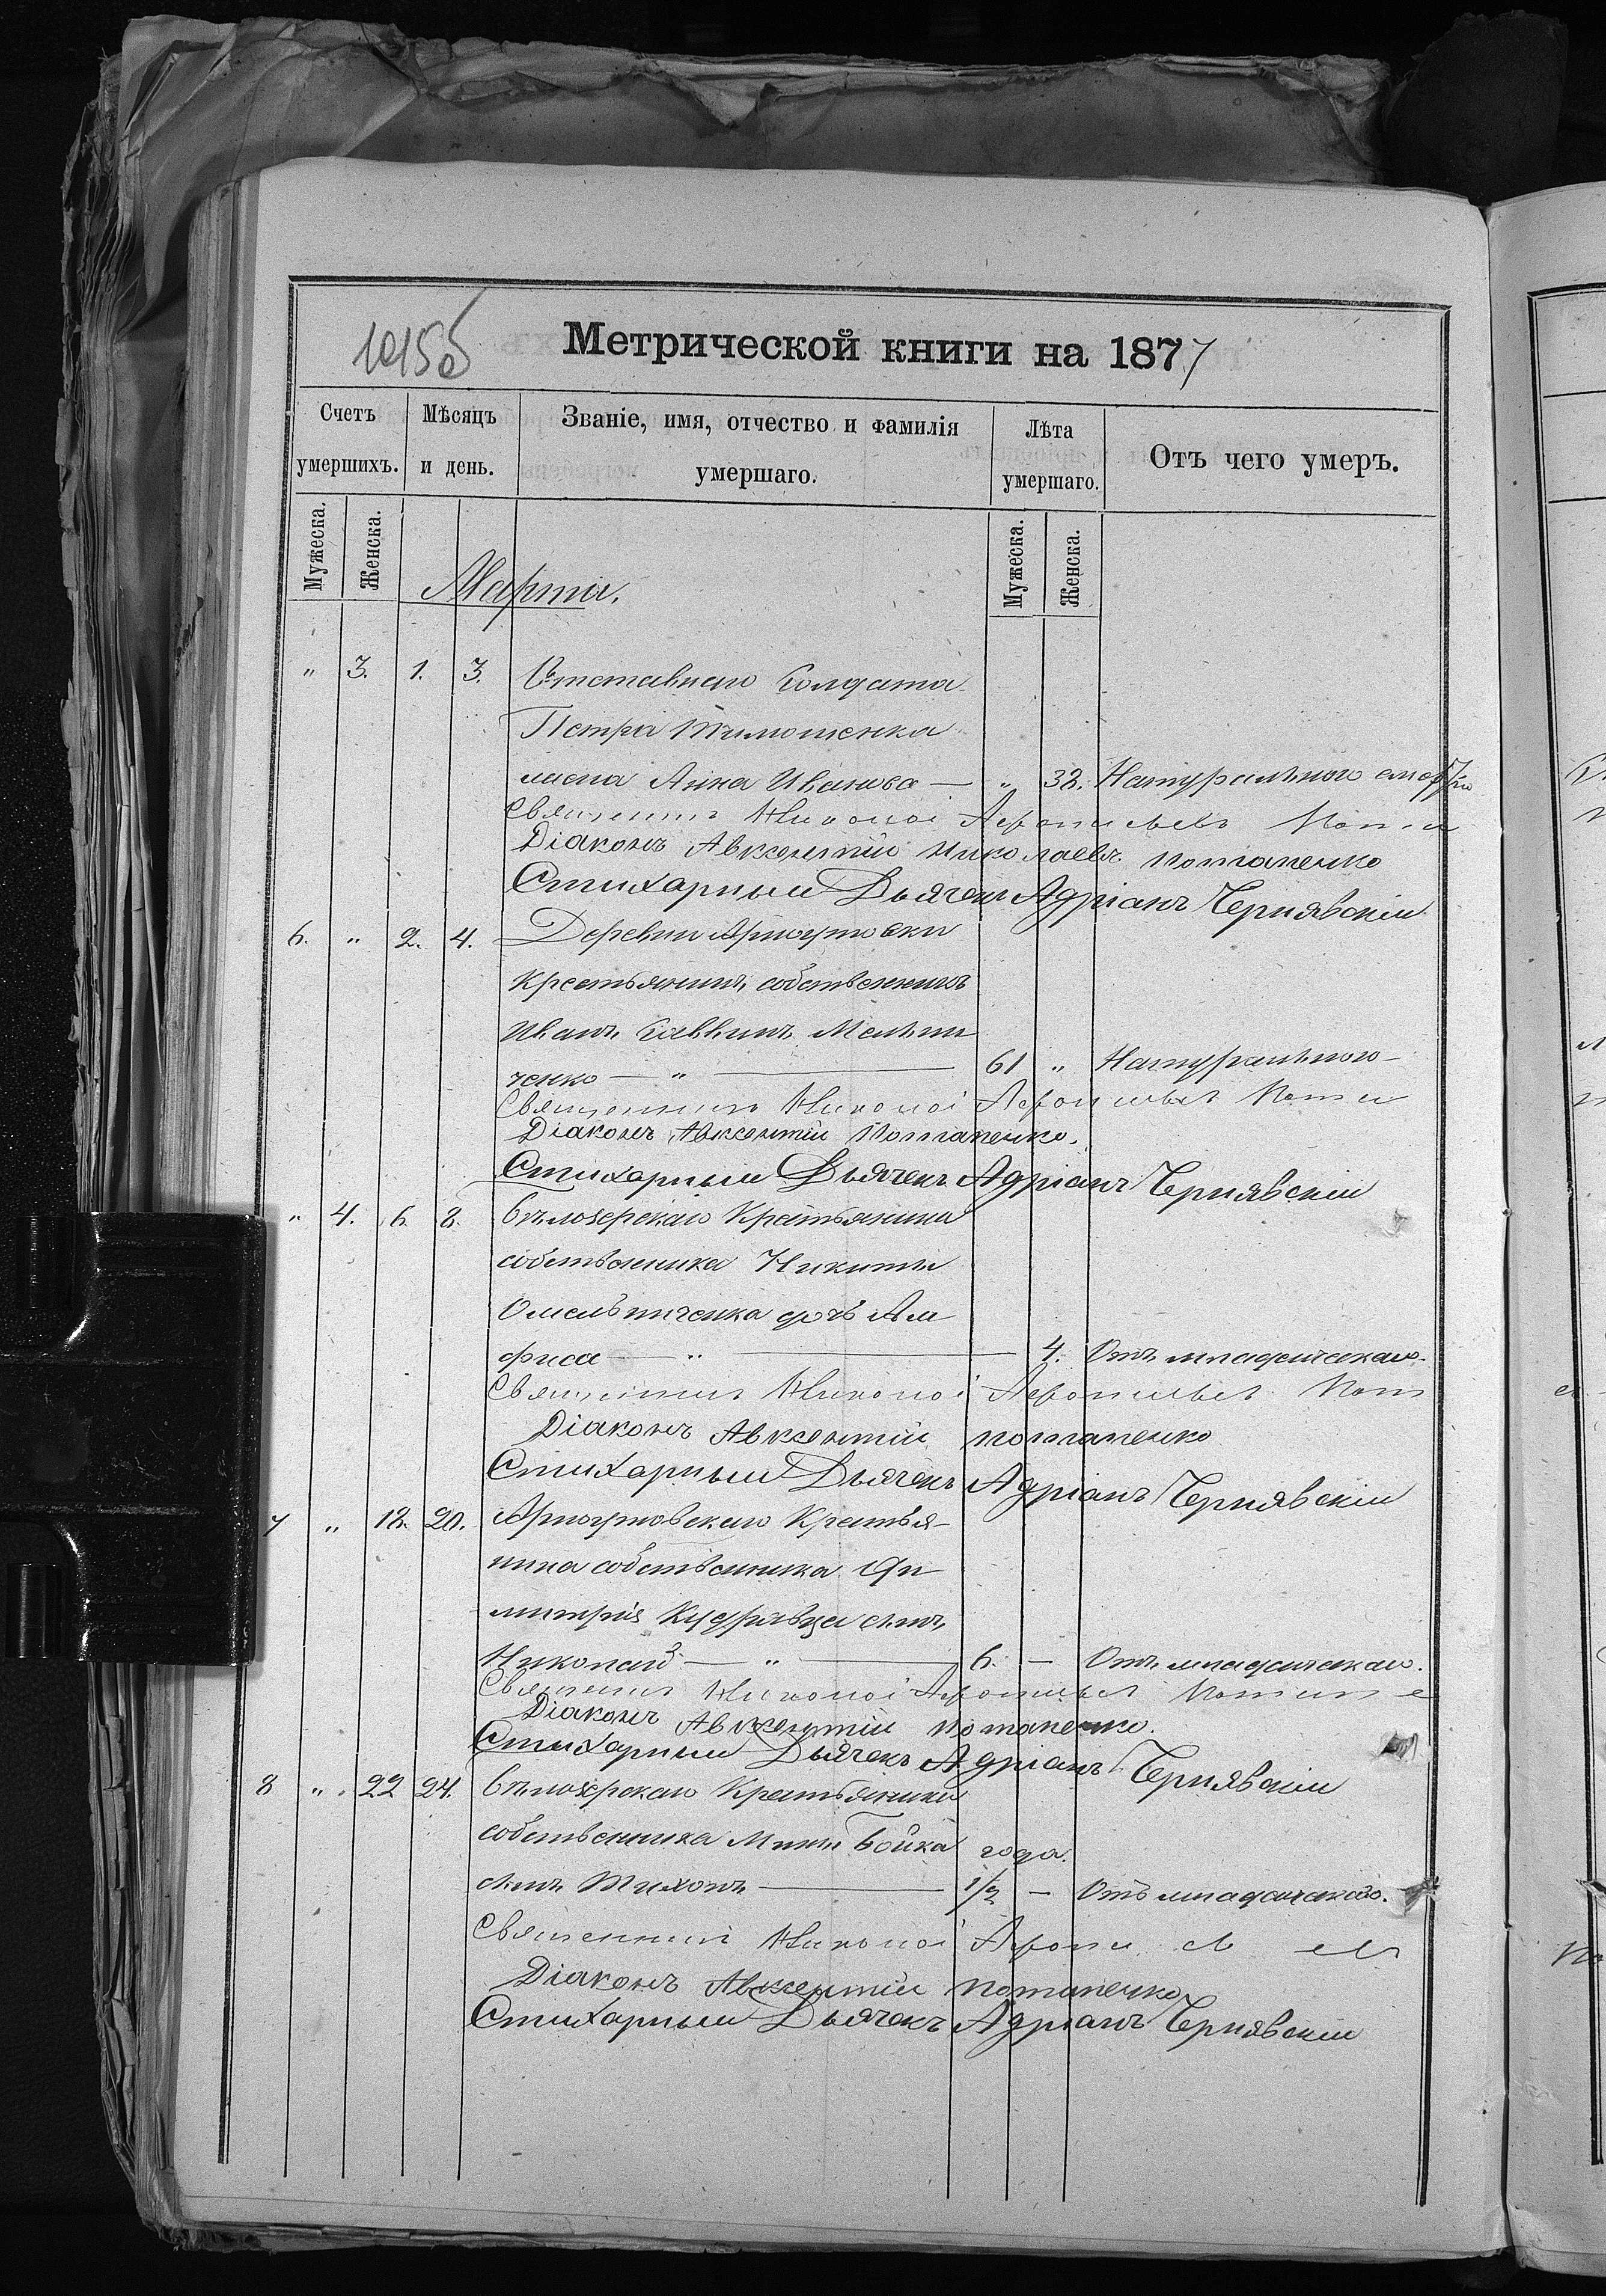 1015б
Метрической книги на 1877
Счетъ умершихъ.
Мѣсяцъ и день.
Званіе, имя, отчество и фамилія умершаго.
Лѣта умершаго.
Отъ чего умеръ.
Мужеска.
Женска.
Мужеска.
Женска.
Марта.
" 3. 1. 3. Отставнаго Солдата
Петра Тимошенка
жена Анна Иванова — " 32. Натуральною
Священникъ Николай
Діаконъ Авксентій Николаевъ Потапенко
Стихарный Дьячекъ Адріанъ Чернявскій
6. " 2. 4. Деревни Аргоутовки
Крестьянинъ собственникъ
Иванъ Саввинъ Мельни
ченко — " — 61 " Натуральною
Священникъ Николай
Діаконъ Авксентій Потапенко.
Стихарный Дьячекъ Адріанъ Чернявскій
" 4. 6. 8. Бѣлозерскаго Крестьянина
собственника Никиты
Омельниченка дочь Ма
— " — 4. Отъ младенческаго.
Священникъ Николай
Діаконъ Авксентій Потапенко
Стихарный Дьячекъ Адріанъ Чернявскій
7 " 18. 20. Аргоутовскаго Крестья-
нина собственника Ди
митрія Кудрявца сынъ
Николай — " — 6. — Отъ младенческаго.
Священникъ Николай
Діаконъ Авксентій Потапенко.
Стихарный Дьячекъ Адріанъ Чернявскій
8 " 22 24. Бѣлозерскаго Крестьянина
собственника Мины Бойка года.
сынъ Тихонъ — 1/2 — Отъ младенческаго.
Священникъ Николай
Діаконъ Авксентій Потапенко
Стихарный Дьячекъ Адріанъ Чернявскій